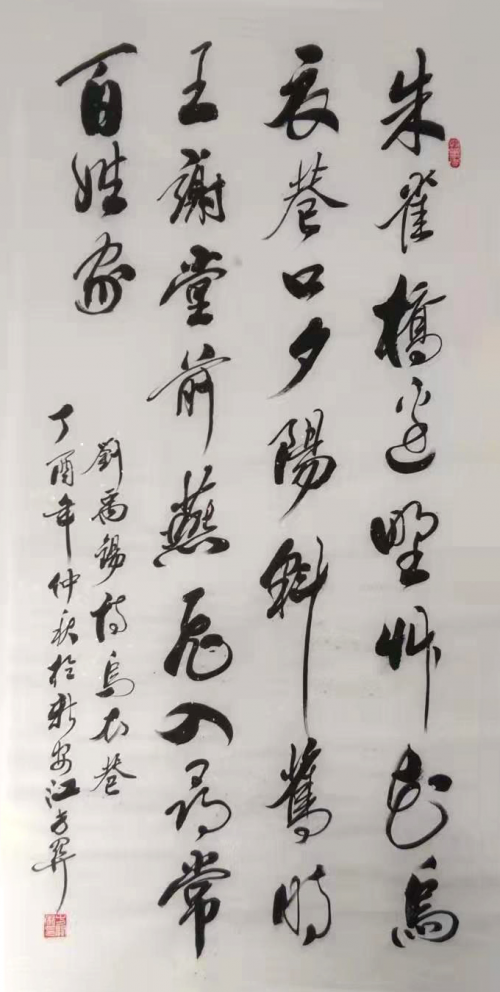 朱雀橋邊野艸花烏
衣巷口夕陽斜舊時
王謝堂前燕飛入尋常
百姓家
劉禹錫詩烏衣巷
丁酉年仲秋於新安江方羿